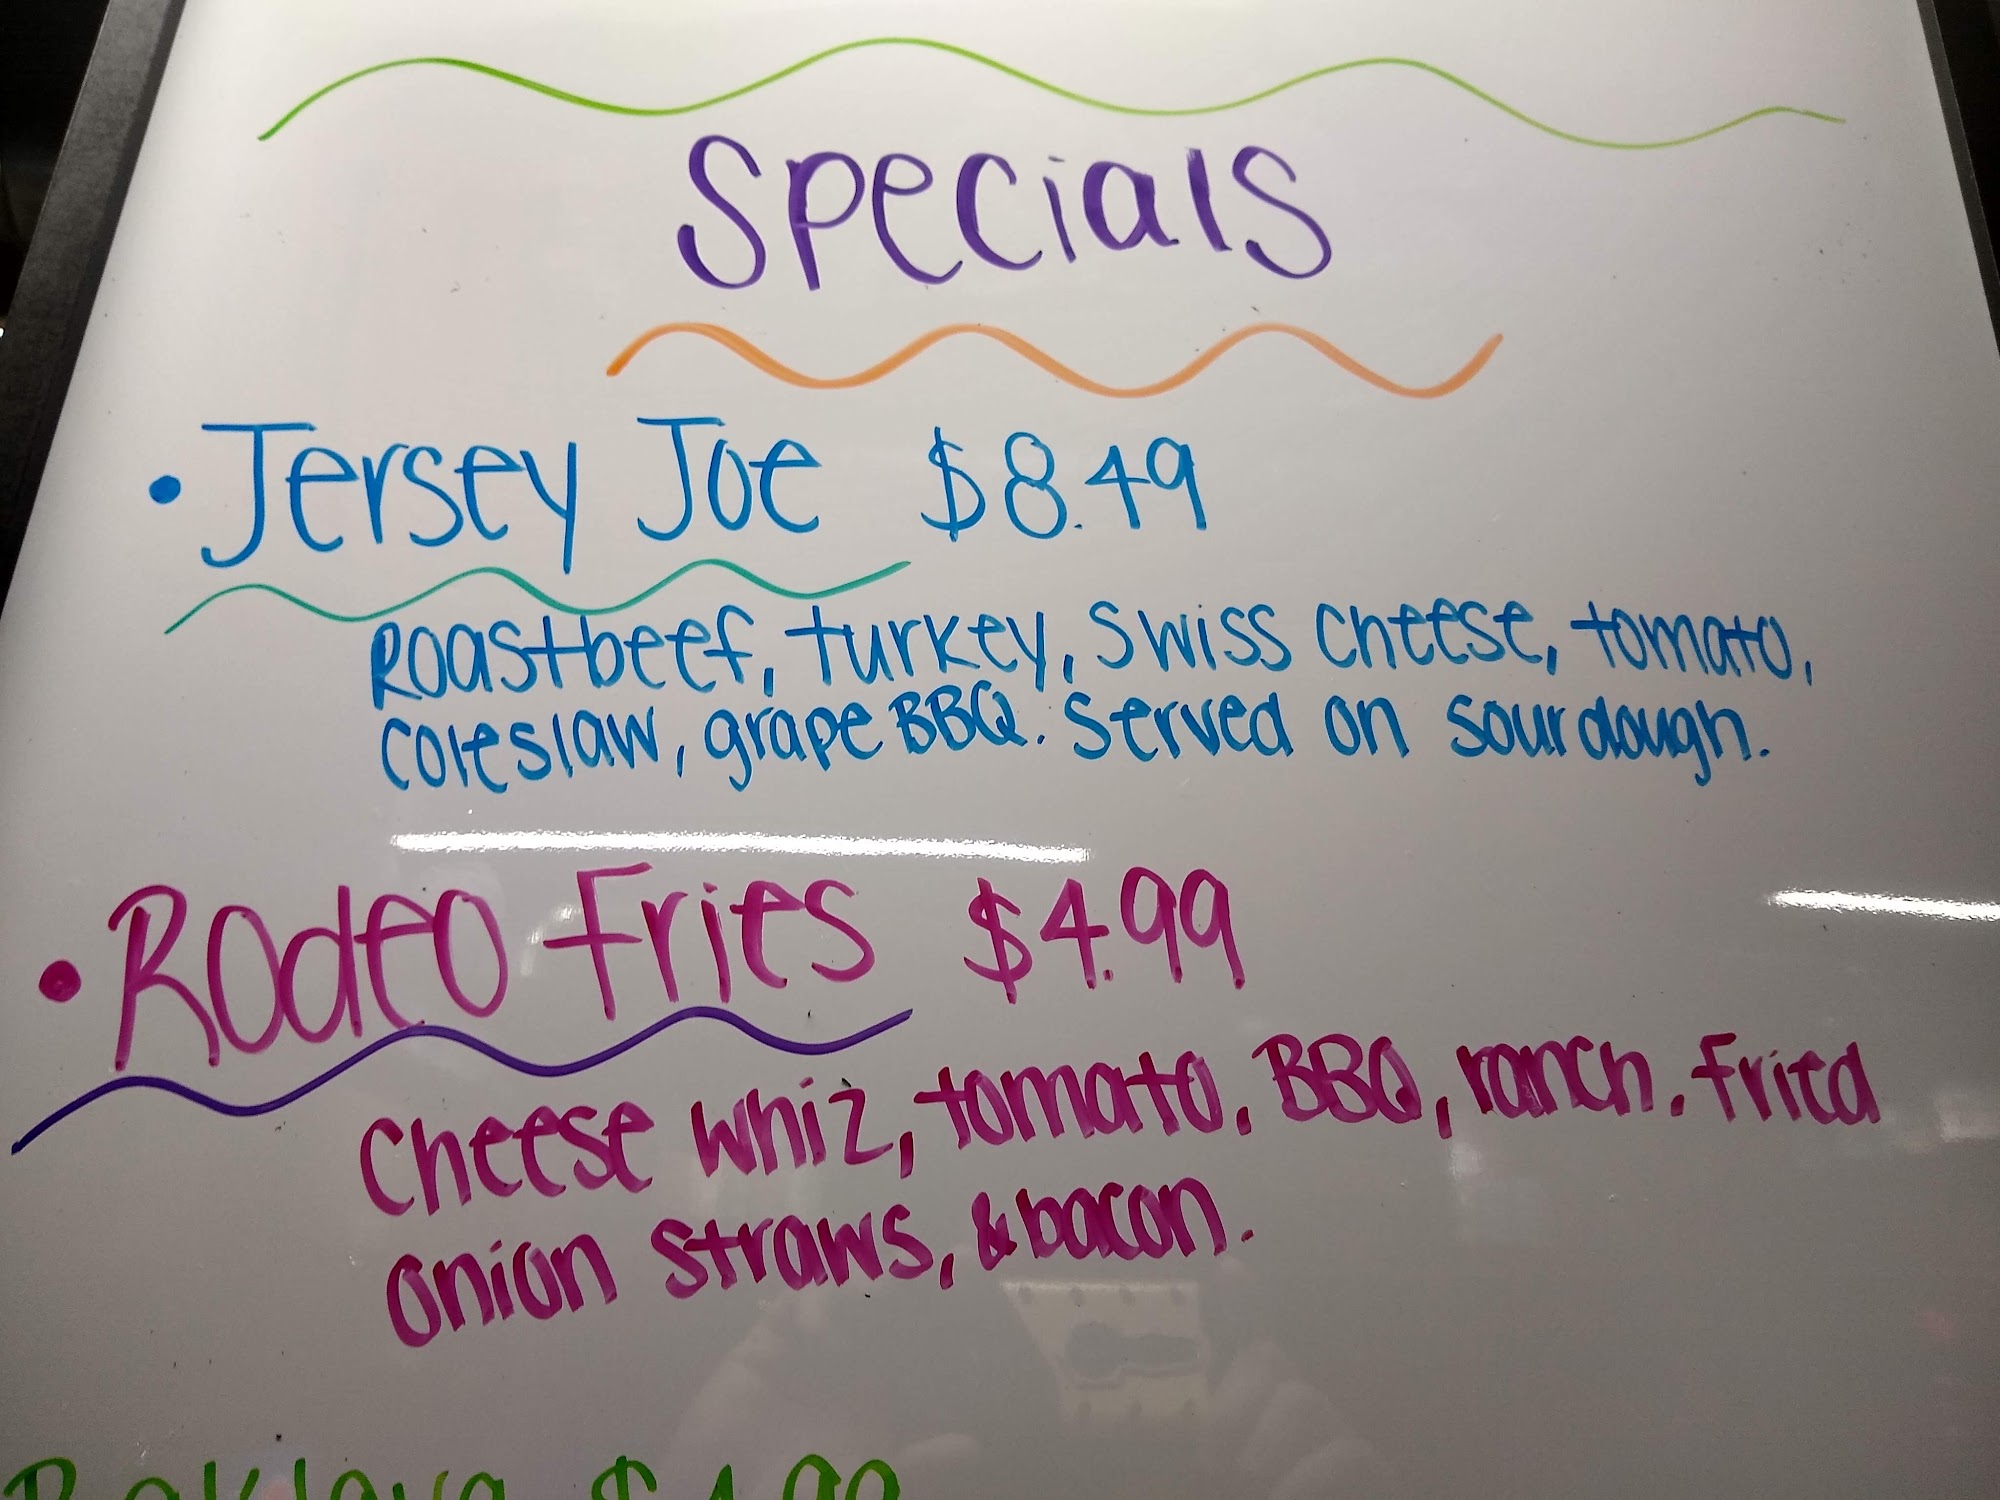 Specials
• Jersey Joe $8.49
Roastbeef, turkey, swiss cheese, tomato,
coleslaw, grape BBQ. Served on sourdough.
• Rodeo Fries $4.99
Cheese whiz, tomato, BBQ, ranch, fried
onion straws, & bacon.
Baklava